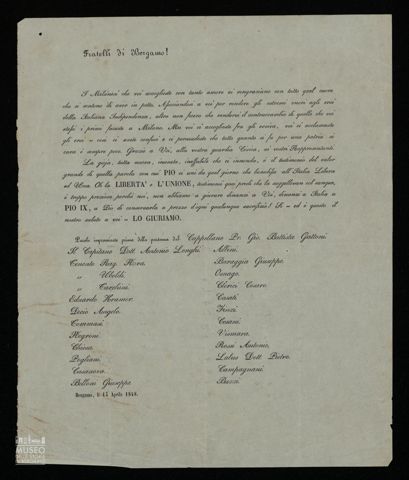 Fratelli di Bergamo!
I Milanesi che accoglieste con tanto amore vi ringraziano con tutto quel cuore
che si sentono di avere in petto. Associandosi a voi per rendere gli estremi onori agli eroi
della Italiana Indipendenza, altro non fecero che rendervi il contraccambio di quello che voi
stessi i primi faceste a Milano. Ma voi ci accoglieste fra gli evviva, voi ci acclamaste
gli eroi – voi ci avete confusi e ci persuadeste che tutto quanto si fa per una patria sì
cara è sempre poco. Grazie a Voi, alla vostra guardia Civica, ai vostri Rappresentanti.
La gioja, tutta nuova, insueta, ineffabile che ci innonda, è il testimonio del valor
grande di quella parola con cui PIO IX unì da quel giorno che benedisse all'Italia Libera
ed Una. Oh la LIBERTA' e L'UNIONE, testimoni quei prodi che la suggellaron col sangue,
è troppo preziosa perchè noi, non abbiamo a giurare dinanzi a Voi, dinanzi a Italia a
PIO IX, a Dio di conservarla a prezzo d'ogni qualunque sacrifizio! Sì – ed è questo il
nostro saluto a voi – LO GIURIAMO.
Pr. Gio. Battista Gattoni
Il Capitano Dott. Antonio Longhi
Albini.
Tenente Rag. Mora.
Baraggia Giuseppe.
„ Viboldi.
Osnago.
„ Carolini.
Clerici Cesare.
Eduardo Kramer.
Casati.
Decio Angelo.
Finzi.
Tommasi.
Cesani.
Negroni.
Vismara.
Chiesa.
Rossi Antonio.
Pogliani.
Latus Dott. Pietro.
Casanova.
Campagnani.
Belloni Giuseppe
Bazzi.
Bergamo, li 15 Aprile 1848.
MUSEO